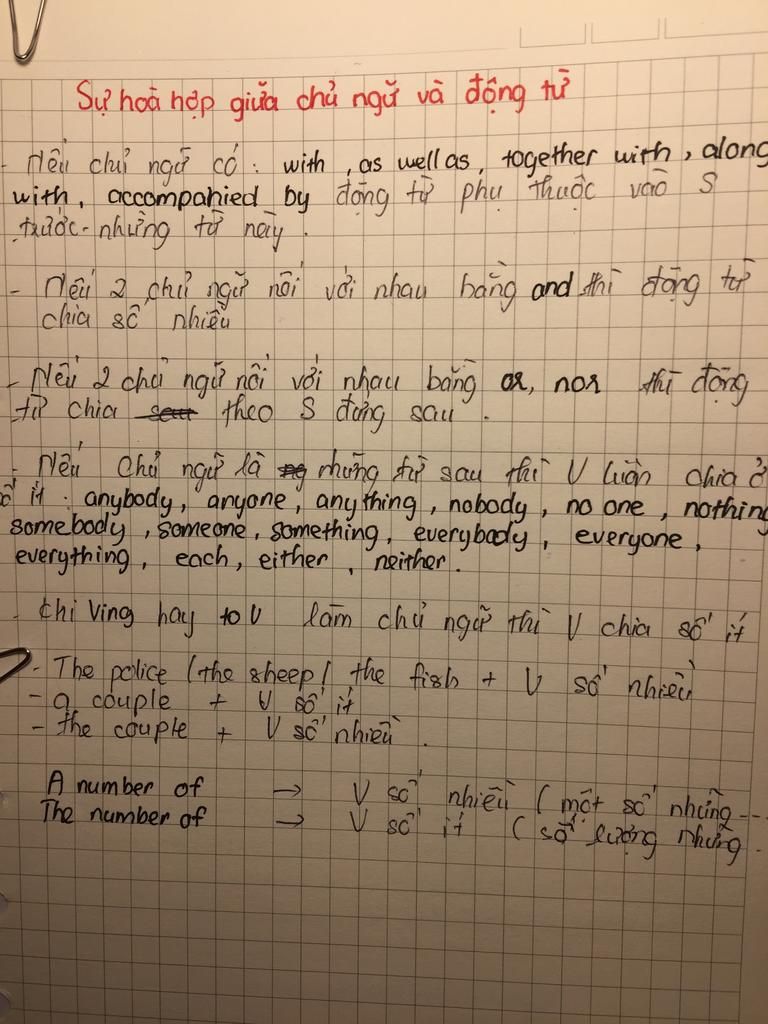 Sự hoà hợp giữa chủ ngữ và động từ
- Nếu chủ ngữ có : with , as well as , together with , along
with , accompanied by động từ phụ thuộc vào S
trước những từ này .
- Nếu 2 chủ ngữ nối với nhau bằng and thì động từ
chia số nhiều
- Nếu 2 chủ ngữ nối với nhau bằng or, nor thì động
từ chia theo S đứng sau .
- Nếu Chủ ngữ là những từ sau thì V luôn chia ở
số ít : anybody , anyone , anything , nobody , no one , nothing
somebody , someone , something , everybody , everyone ,
everything , each , either , neither .
- Khi Ving hay to V làm chủ ngữ thì V chia số ít
- The police / the sheep / the fish + V số nhiều
- a couple + V số ít
- the couple + V số nhiều .
A number of → V số nhiều ( một số những ---
The number of → V số ít ( số lượng những .